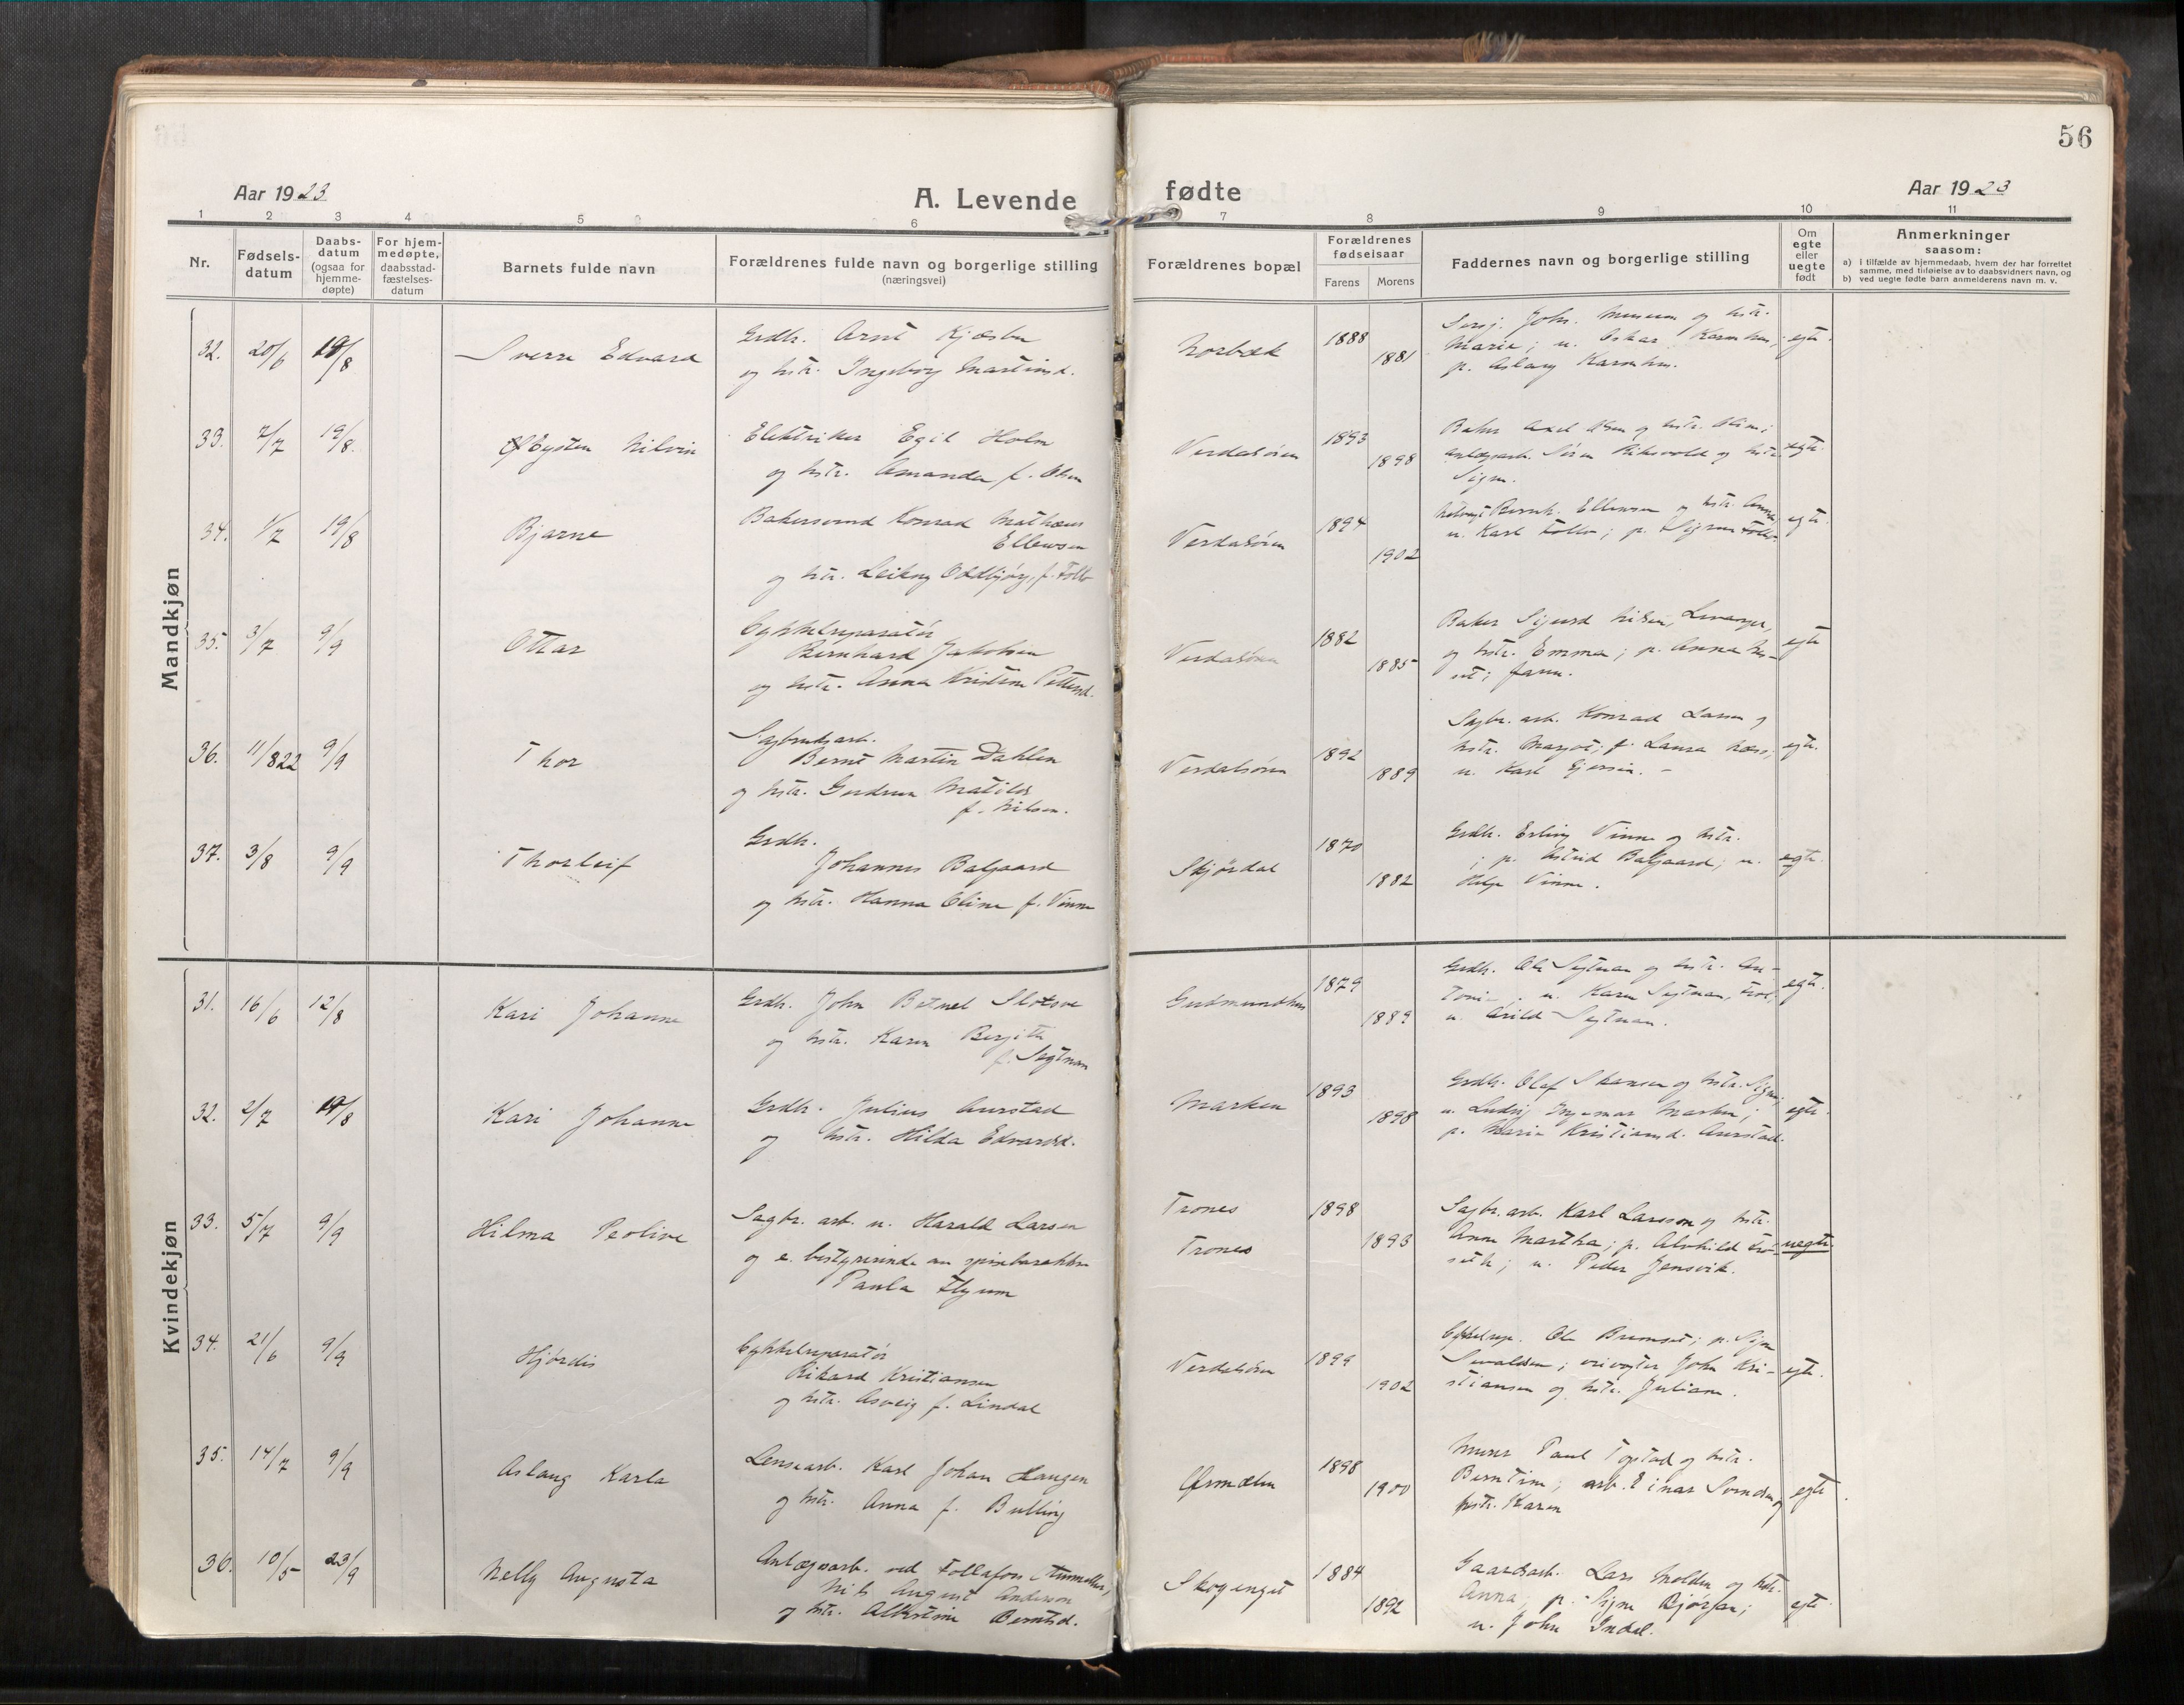 56
Aar 1923
A. Levende fødte
Aar 1923
1 2 3 4 5 6 7 8 9 10 11
Nr.
Fødsels-
datum
Daabs-
datum
(ogsaa for
hjemme-
døpte)
For hjem-
medøpte,
daabsstad-
fæstelses-
datum
Barnets fulde navn
Forældrenes fulde navn og borgerlige stilling
(næringsvei)
Forældrenes bopæl
Forældrenes
fødselsaar
Farens Morens
Faddernes navn og borgerlige stilling
Om
egte
eller
uegte
født
Anmerkninger
saasom:
a) i tilfælde av hjemmedaab, hvem der har forrettet
samme, med tilføielse av to daabsvidners navn, og
b) ved uegte fødte barn anmelderens navn m. v.
Mandkjøn
32. 20/6 19/8 Sverre Edvard
Grdbr. Arnt
og hstr. Ingeborg Martinsd.
1888
1881
Marie; u. Oskar
p. Aslaug
egte.
33. 2/7 19/8. Eysten
Elektriker Egil Holm
og hstr. Amanda f. Olsen
Verdalsøren
1893
1898
Baker Axel Olsen og hstr.
Søren og hstr.
egte.
34. 1/7 19/8 Bjarne
Bakersvend Konrad Mathæus
Ellevsen
og hstr. Oddbjørg, f. Follo
Verdalsøren
1894
1902
Bernh. Ellevsen og hstr. Anna
u. Karl Follo; p. Sigrun Follo.
egte.
35. 3/7 9/9 Ottar
Cykkelreparatør
Bernhard Jakobsen
og hstr. Anna Kristine Pettersd.
Verdalsøren
1882
1885
Baker Sigurd Nilsen, Levanger,
og hstr. Emma; p. Anna
faren.
egte
36. 11/8 22 9/9 Thor
Sagbruksarb.
Bernt Martin Dahlen
og hstr. Gudrun Matilde
f. Nilsen.
Verdalsøren
1892
1889
Sagbr. arb. Konrad Larsen og
hstr. Margot; f. Laura Næss;
u. Karl
egte.
37. 3/8 9/9 Thorleif
Grdbr.
Johannes Balgaard
og hstr. Hanna Oline f. Vinne
Skjørdal
1870
1882
Grdbr. Erling Vinne og hstr.
; p. Astrid Balgaard; u.
Helge Vinne.
egte.
Kvindekjøn
31. 16/6 12/8 Kari Johanne
Grdbr. John Betuel Slotsve
og hstr. Karen Bergitte
f. Segtnan
Gudmundhus
1879
1889
Grdbr. Ole Segtnan og hstr. An-
tonie; u. Karen Segtnan,
u. Arild Segtnan.
egte.
32. 2/7 19/8 Kari Johanne
Grdbr. Julius Aurstad
og hstr. Hilda Edvardsd.
Marken
1893
1898
Grdbr. Olaf Skansen og hstr. Signe;
u. Ludvig Ingemar Marken;
p. Marie Kristiansd. Aurstad.
egte.
33. 5/7 9/9 Hilma Peolive
Sagbr. arb. u. Harald Larsen
og e. bestyrerinde av spisebarakken
Paula Flyum
Trones
Trones
1898
1893
Sagbr. arb. Karl Larsson og hstr.
Anna Martha; p. Alvhild Trø-
seth; u. Peder Jensvik.
uegte.
34. 21/6 9/9 Hjørdis
Cykkelreparatør
Rikard Kristiansen
og hstr. Asveig f. Lindal
Verdalsøren
1899
1902
Cykkelrep. Ole Brumset; p. Signe
Sevaldsen; John Kri-
stiansen og hstr. Juliane.
egte.
35. 14/7 9/9 Aslaug Karla
Lensearb. Karl Johan Haugen
og hstr. Anna f. Bulling
Ørmelen
1898
1900
Murer Paul Topstad og hstr.
Berntine; arb. Einar Svendsen og
hstr. Karen
egte.
36. 10/5 23/9 Nelly Augusta
Anlægsarb. ved Follafoss
Nils August Anderson
og hstr. Berntsd.
Skogenget
1884
1892
Gaardsarb. Lars Molden og hstr.
Anna; p. Signe Bjørgan;
u. John Indal.
egte.